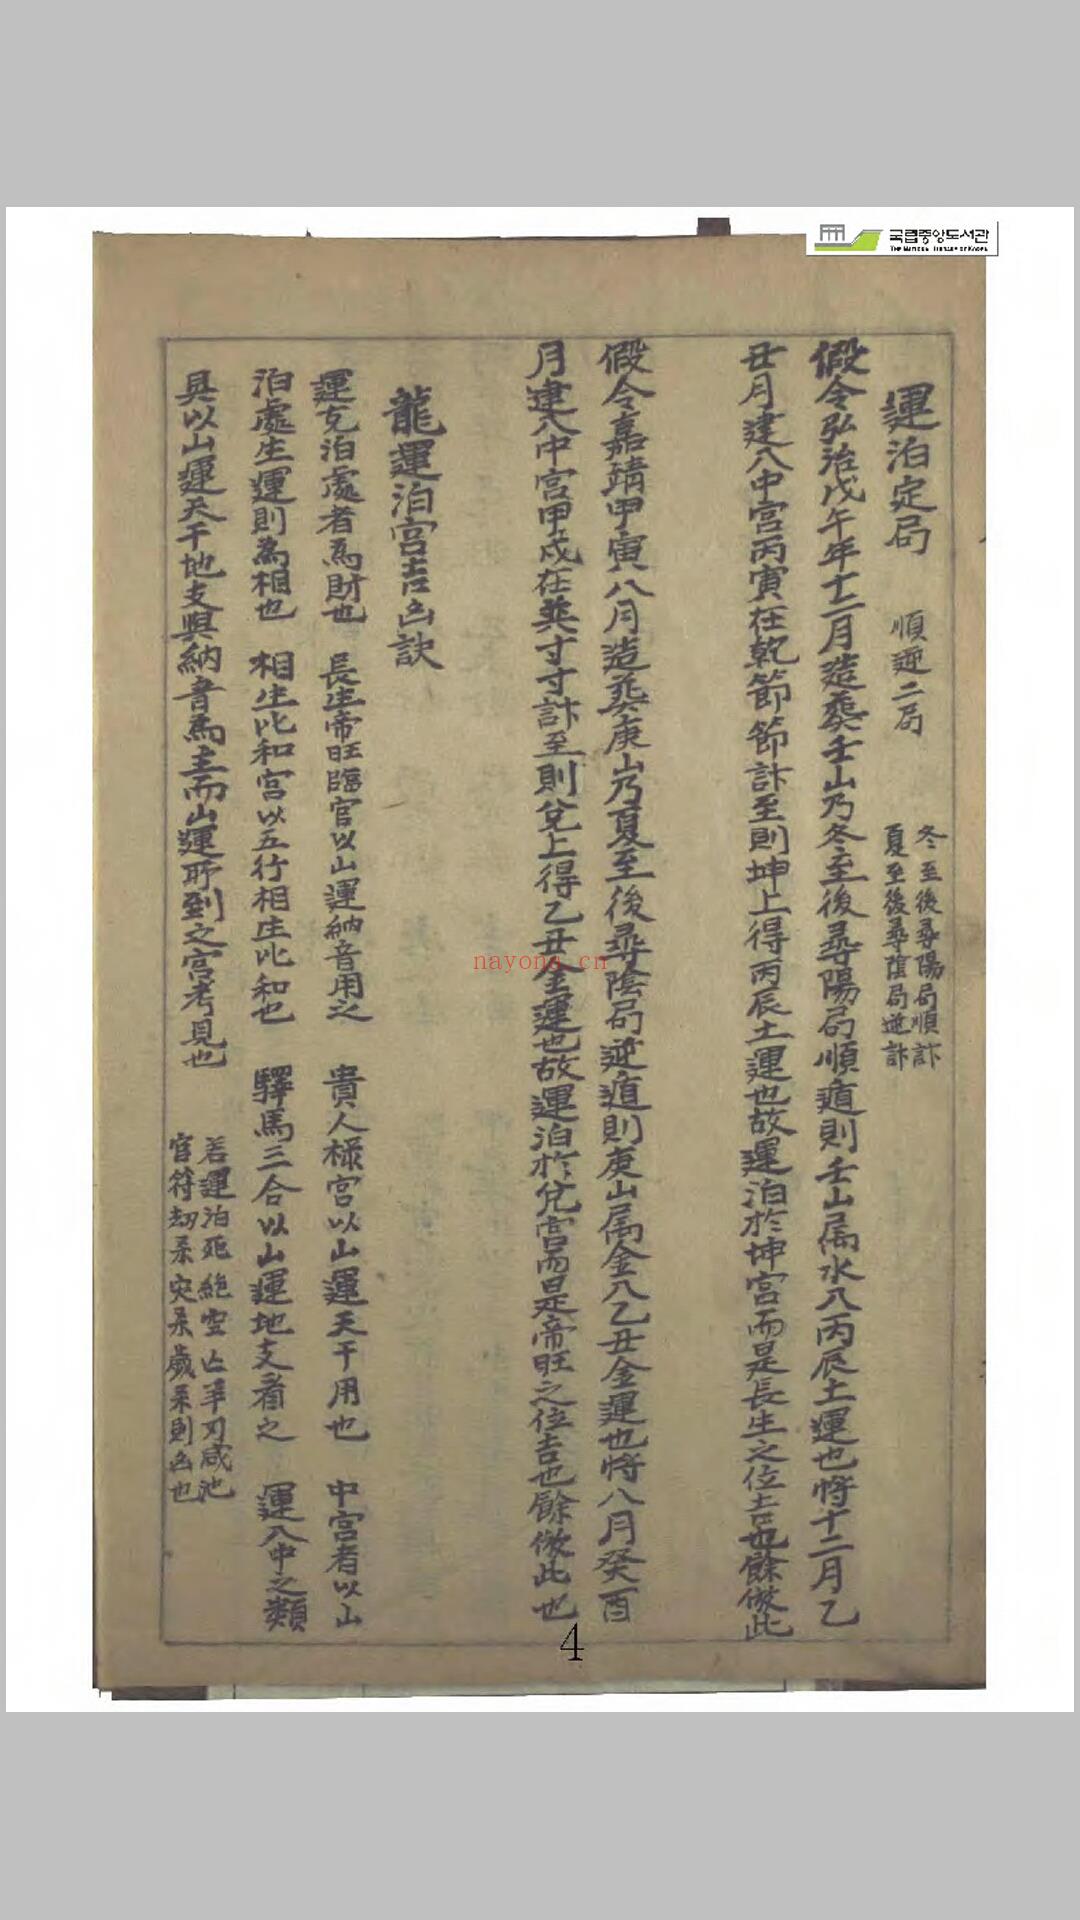 국립중앙도서관
THE NATIONAL LIBRARY OF KOREA
運泊定局 順逆二局 冬至後尋陽局順計
夏至後尋陰局逆計
假令弘治戊午年十二月造葬壬山乃冬至後尋陽局順遁則壬山属水入丙辰土運也将十二月乙
丑月建入中宮丙寅在乾節節計至則坤上得丙辰土運也故運泊於坤宮而是長生之位吉也餘倣此
假令嘉靖甲寅八月造葬庚山乃夏至後尋陰局逆遁則庚山属金入乙丑金運也将八月癸酉
月建入中宮甲戌在巽寸寸計至則兌上得乙丑金運也故運泊於兌宮而是帝旺之位吉也餘倣此也
龍運泊宮吉凶訣
運克泊處者為財也 長生帝旺臨官以山運納音用之 貴人禄宮以山運天干用也 中宮者以山
泊處生運則為相也 相生比和宮以五行相生比和也 驛馬三合以山運地支看之 運入中之類
具以山運天干地支與納音為主而山運所到之宮考見也 若運泊死絶空亡羊刃咸池
官符劫杀灾杀歲杀則凶也
nayona.cn
4